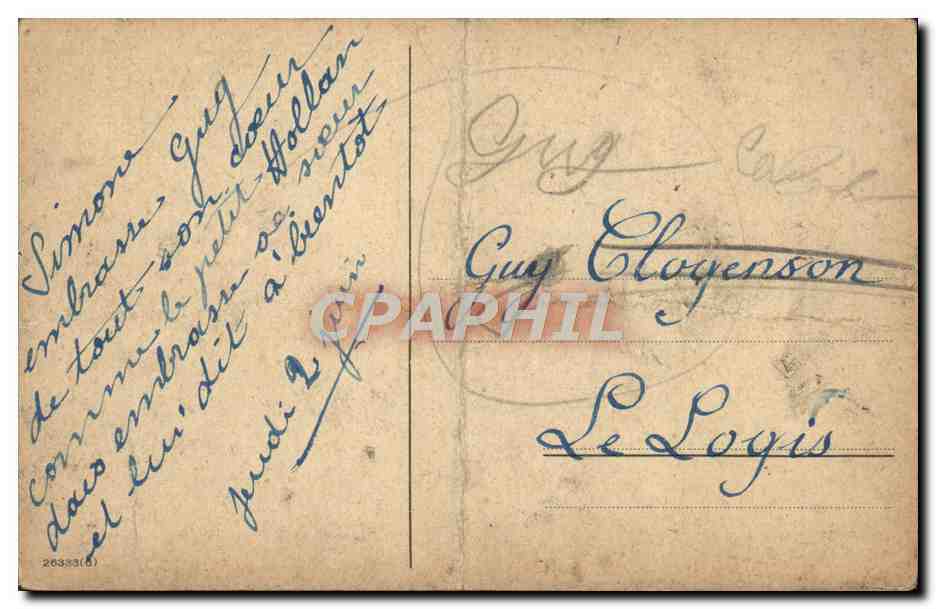 Simone
embrasse Guy
de tout son cœur
comme le petit Hollan
dais embrasse sa sœur
et lui dit à bientôt
jeudi 2 juin
26333(6)
Guy
Guy Clogenson
Le Logis
CPAPHIL